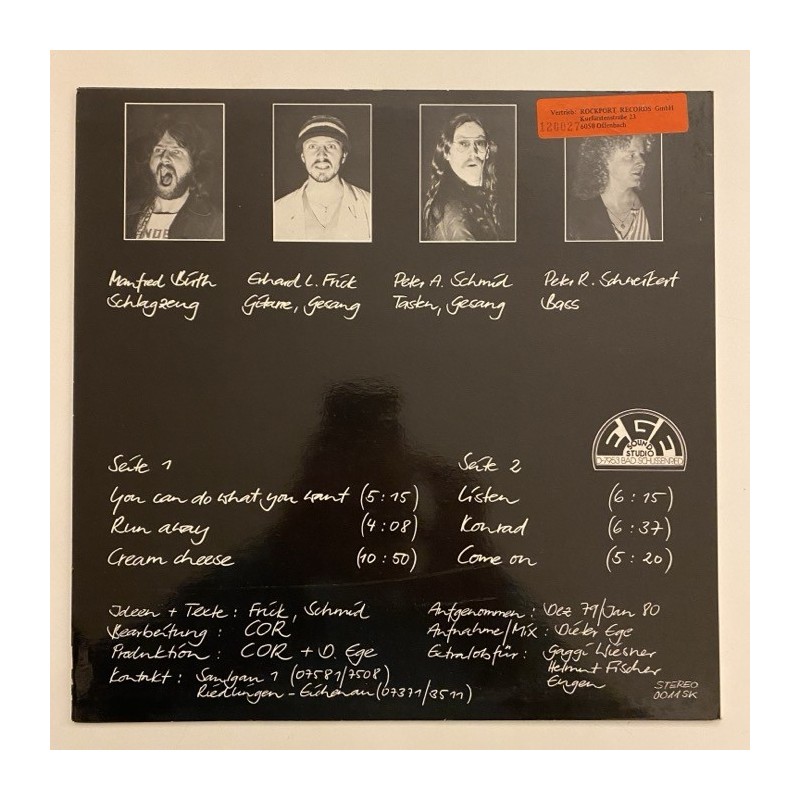 Vertrieb: ROCKPORT RECORDS GmbH
Kurfürstenstraße 23
120027 6050 Offenbach
Manfred Bürth
Schlagzeug
Erhard L. Frick
Gitarre, Gesang
Peter A. Schmid
Tasten, Gesang
Peter R. Schweikert
Bass
EGE
SOUND
STUDIO
D-7953 BAD SCHUSSENRIED
Seite 1
You can do what you want (5:15)
Run away (4:08)
Cream cheese (10:50)
Seite 2
Listen (6:15)
Konrad (6:37)
Come on (5:20)
Ideen + Texte: Frick, Schmid
Bearbeitung: COR
Produktion: COR + D. Ege
Kontakt: Saulgau 1 (07581/7508)
Riedlingen-Eichenau (07371/8511)
Aufgenommen: Dez 79/Jan 80
Aufnahme/Mix: Dieter Ege
Extralob für: Gaggi Wiesner
Helmut Fischer
Eugen
STEREO
0011SK